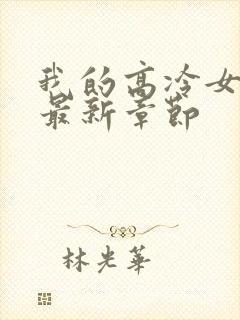 我的高冷女
最新章节
林光华